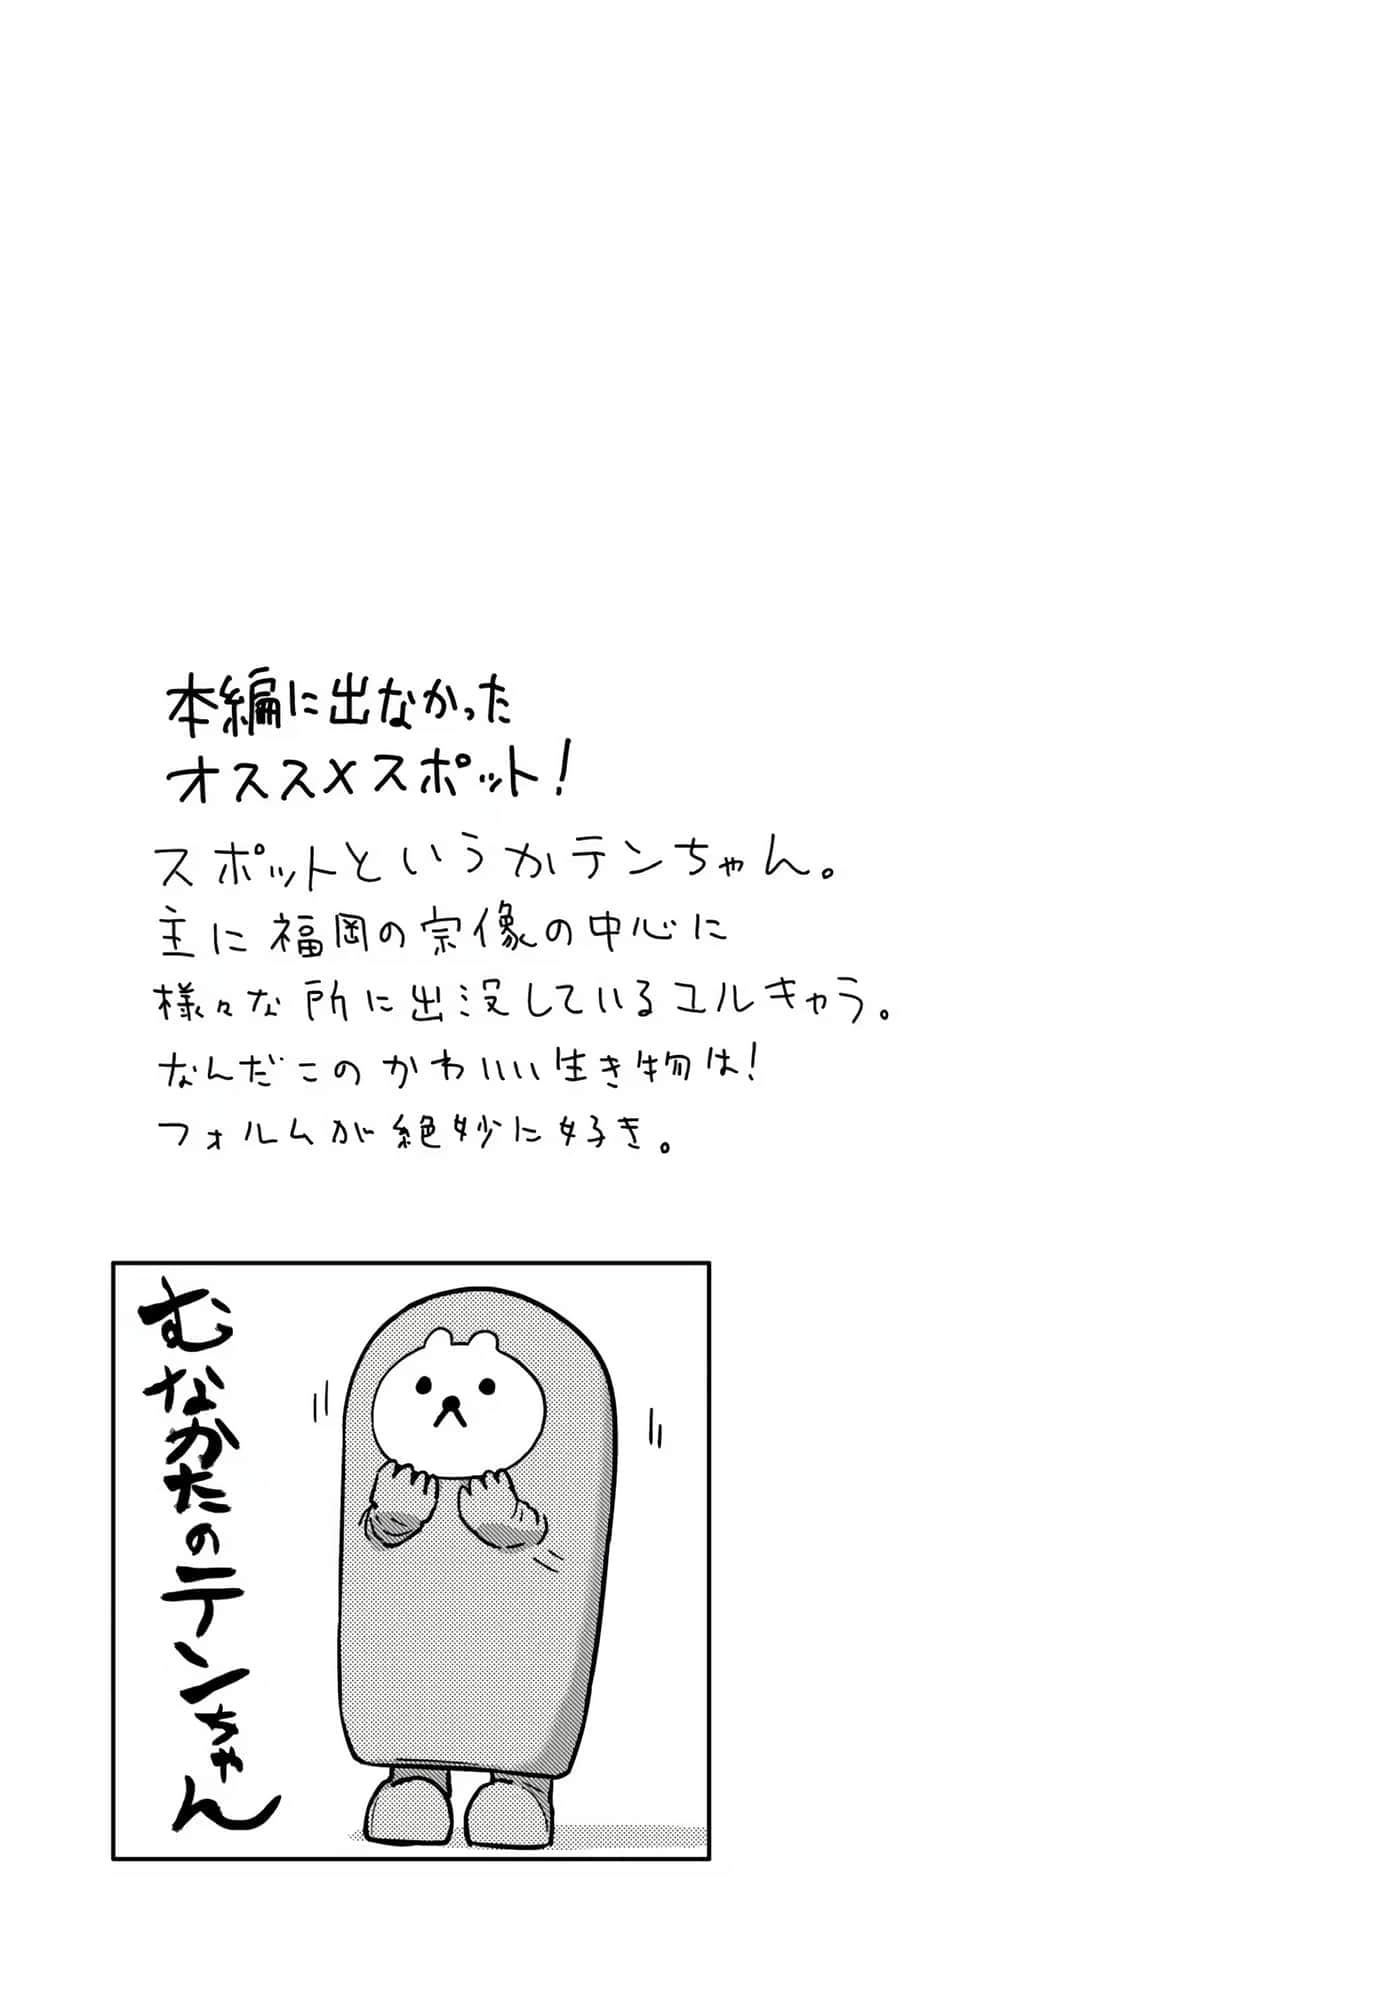 本編に出なかった
オススメスポット!
スポットというかテンちゃん。
主に福岡の宗像の中心に
様々な所に出没しているユルキャラ。
なんだこのかわいい生き物は!
フォルムが絶妙に好き。
むなかたのテンちゃん